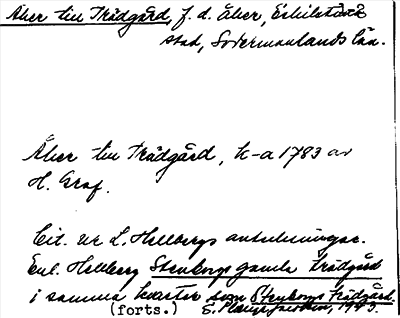 Åker till Trädgård, f. d. åker, Eskilstuna
stad, Södermanlands län.
Åker till Trädgård, k-a 1783 av
H. Graf.
Cit. ur L. Hellbergs anteckningar.
Enl. Hellberg Stenborgs gamla trädgård
i samma kvarter som Stenborgs Trädgård.
(forts.) 1943.